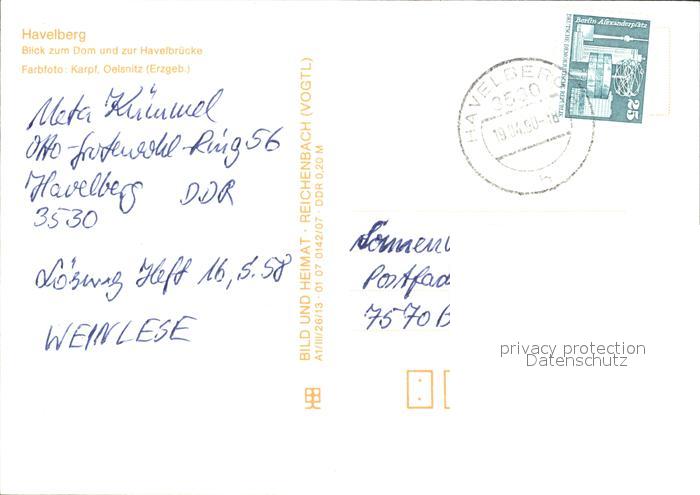 Havelberg
Blick zum Dom und zur Havelbrücke
Farbfoto: Karpf, Oelsnitz (Erzgeb.)
Meta Kümmel
Otto-Grotewohl-Ring 56
Havelberg DDR
3530
Lösung Heft 16, S. 58
WEINLESE
BILD UND HEIMAT · REICHENBACH (VOGTL)
A1/III/26/13 · 01 07 0142/07 · DDR 0,20 M
Berlin Alexanderplatz
DEUTSCHE DEMOKRATISCHE REPUBLIK
25
HAVELBERG
3530
Postfac
7570 B
privacy protection
Datenschutz